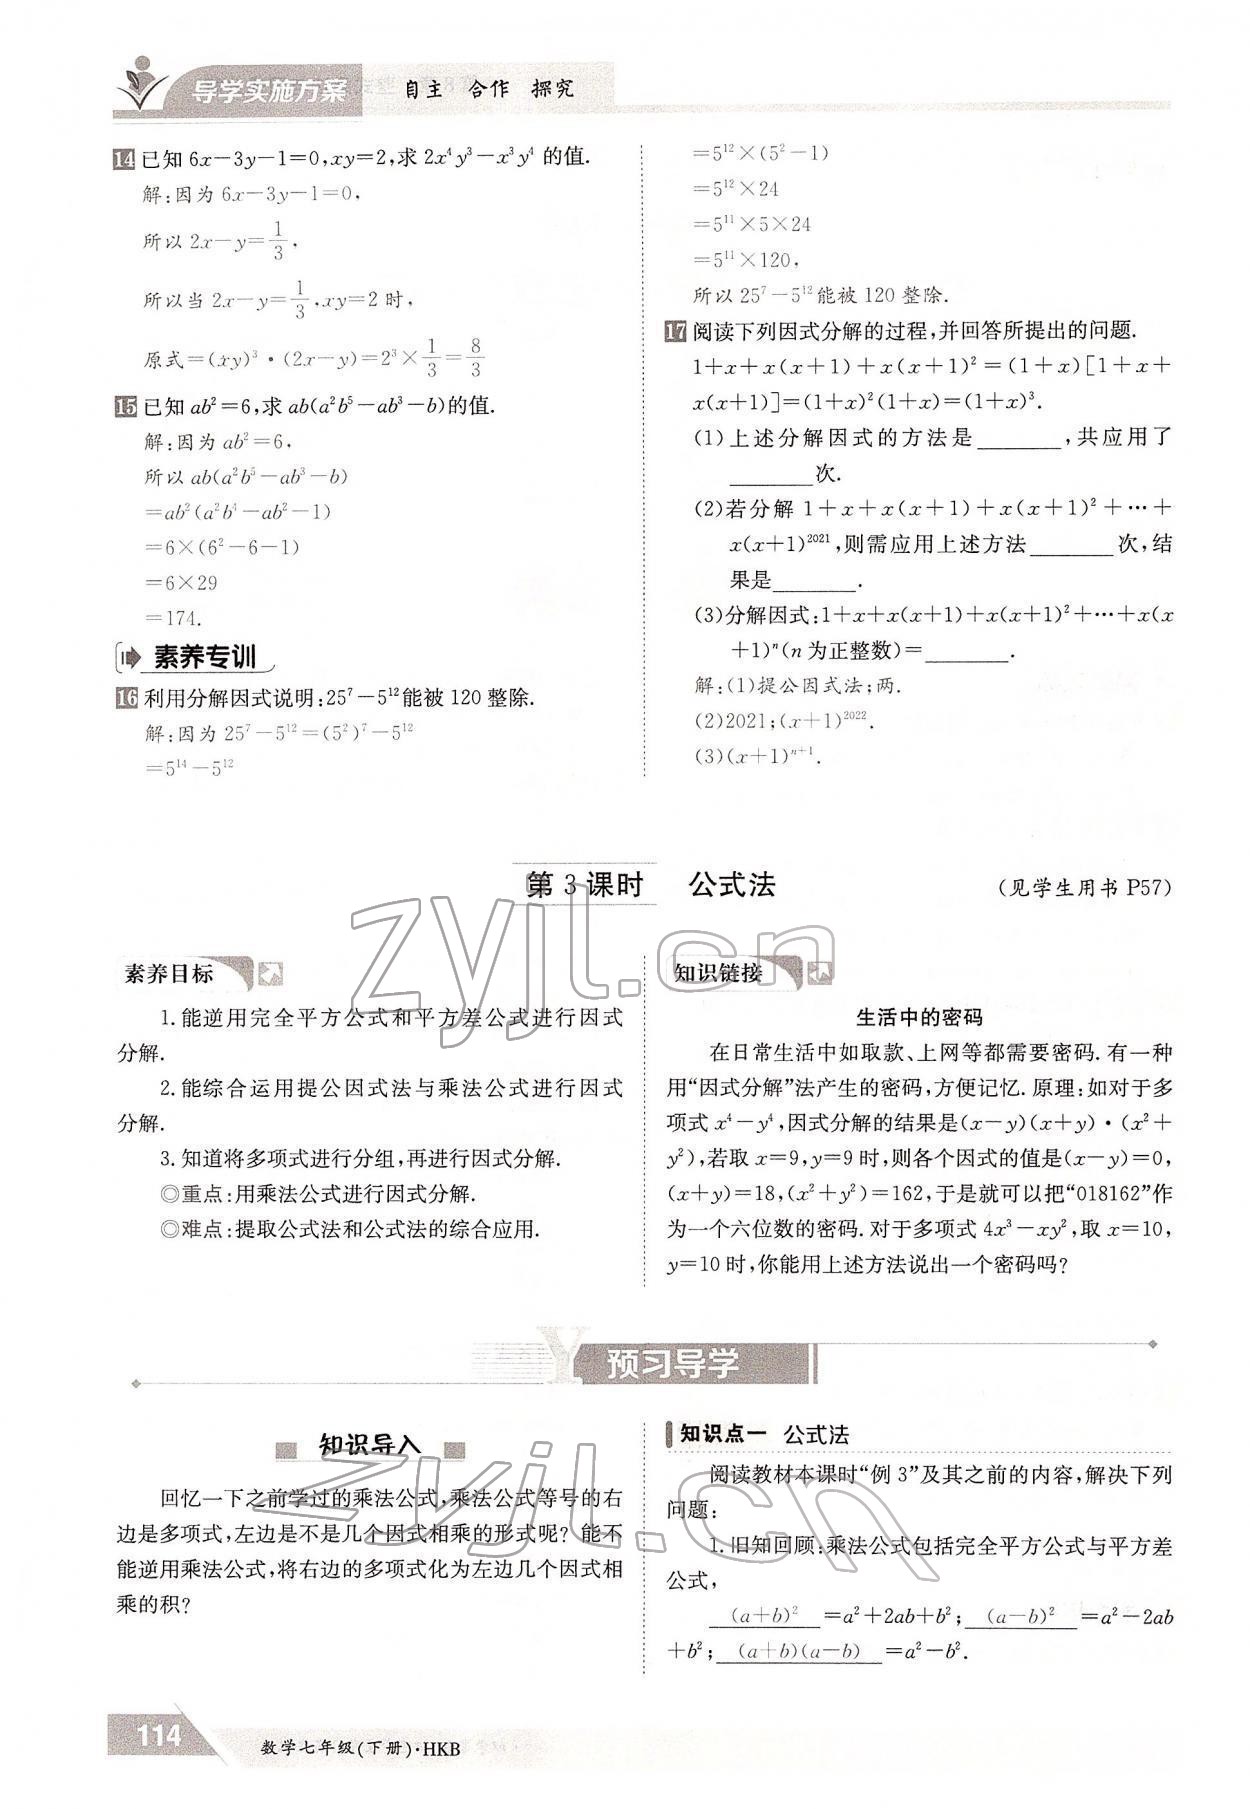 导学实施方案 自主 合作 探究
14 已知 6x－3y－1＝0,xy＝2,求 2x⁴y³－x³y⁴ 的值.
解:因为 6x－3y－1＝0,
所以 2x－y＝1/3,
所以当 2x－y＝1/3,xy＝2 时,
原式＝(xy)³·(2x－y)＝2³×1/3＝8/3
15 已知 ab²＝6,求 ab(a²b⁵－ab³－b)的值.
解:因为 ab²＝6,
所以 ab(a²b⁵－ab³－b)
＝ab²(a²b⁴－ab²－1)
＝6×(6²－6－1)
＝6×29
＝174.
素养专训
16 利用分解因式说明:25⁷－5¹²能被 120 整除.
解:因为 25⁷－5¹²＝(5²)⁷－5¹²
＝5¹⁴－5¹²
＝5¹²×(5²－1)
＝5¹²×24
＝5¹¹×5×24
＝5¹¹×120,
所以 25⁷－5¹²能被 120 整除.
17 阅读下列因式分解的过程,并回答所提出的问题.
1＋x＋x(x＋1)＋x(x＋1)²＝(1＋x)[1＋x＋
x(x＋1)]＝(1＋x)²(1＋x)＝(1＋x)³.
(1)上述分解因式的方法是________,共应用了
________次.
(2)若分解 1＋x＋x(x＋1)＋x(x＋1)²＋…＋
x(x＋1)²⁰²¹,则需应用上述方法________次,结
果是________.
(3)分解因式:1＋x＋x(x＋1)＋x(x＋1)²＋…＋x(x
＋1)ⁿ(n 为正整数)＝________.
解:(1)提公因式法;两.
(2)2021;(x＋1)²⁰²².
(3)(x＋1)ⁿ⁺¹.
第 3 课时 公式法 (见学生用书 P57)
素养目标
1.能逆用完全平方公式和平方差公式进行因式
分解.
2.能综合运用提公因式法与乘法公式进行因式
分解.
3.知道将多项式进行分组,再进行因式分解.
◎重点:用乘法公式进行因式分解.
◎难点:提取公因式法和公式法的综合应用.
知识链接
生活中的密码
在日常生活中如取款、上网等都需要密码.有一种
用“因式分解”法产生的密码,方便记忆.原理:如对于多
项式 x⁴－y⁴,因式分解的结果是(x－y)(x＋y)·(x²＋
y²),若取 x＝9,y＝9 时,则各个因式的值是(x－y)＝0,
(x＋y)＝18,(x²＋y²)＝162,于是就可以把“018162”作
为一个六位数的密码.对于多项式 4x³－xy²,取 x＝10,
y＝10 时,你能用上述方法说出一个密码吗?
预习导学
知识导入
回忆一下之前学过的乘法公式,乘法公式等号的右
边是多项式,左边是不是几个因式相乘的形式呢? 能不
能逆用乘法公式,将右边的多项式化为左边几个因式相
乘的积?
知识点一 公式法
阅读教材本课时“例 3”及其之前的内容,解决下列
问题:
1.旧知回顾:乘法公式包括完全平方公式与平方差
公式,
(a＋b)² ＝a²＋2ab＋b²; (a－b)² ＝a²－2ab
＋b²; (a＋b)(a－b) ＝a²－b².
114 数学七年级(下册)·HKB
zyjl.cn
zyjl.cn